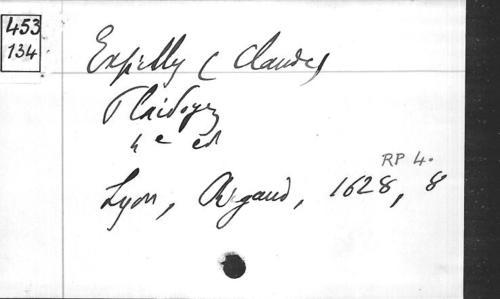 453
134
Expilly (Claude)
Plaidoyez
4e ed
RP 4.
Lyon, Rigaud, 1628, 8